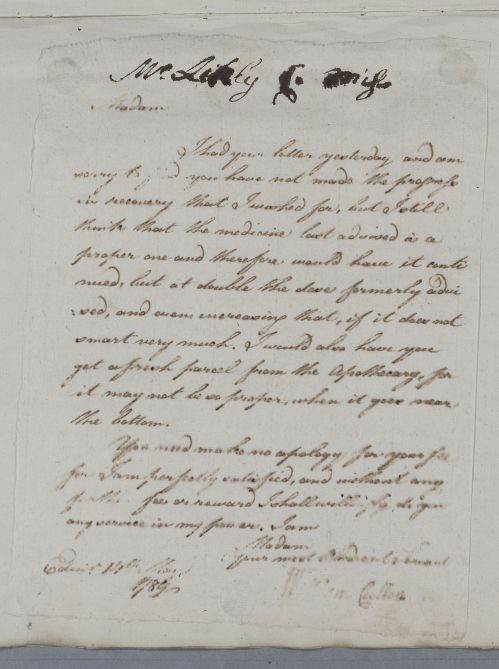 Mrs. Likly
Madam
I had your letter yesterday and am
sorry to find you have not made the progress
in recovery that I wished for, but I still
think that the medicine last advised is a
proper one and therefore would have it conti
nued, but at double the dose formerly advi
:sed, and even increasing that, if it does not
smart very much. I would also have you
get a fresh parcel from the Apothecary, for
it may not be so proper, when it goes near
the bottom.
You need make no apology for your fee
for I am perfectly satisfied, and without any
further fee or reward I shall willingly do you
any service in my power. I am
Madam
your most obedient servant
Cullen
Edinr.